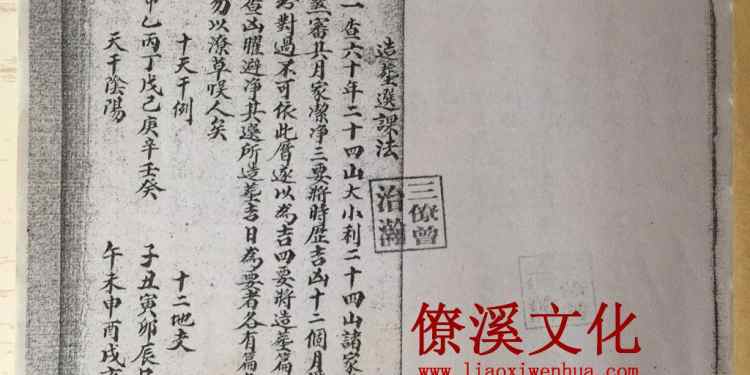 造塋選課法
一查六十年二十四山大小利二十四山諸家
審其月家潔净三要將時歷吉凶十二個月
對過不可依此曆遂以為吉四要將造塋篇
查凶曜避净其選所造塋吉日為要者各有篇
勿以潦草悞人矣
十天干例
乙丙丁戊己庚辛壬癸
天干陰陽
十二地支
子丑寅卯辰
午未申酉戌
三僚曾
治瀚
僚溪文化
www.liaoxiwenhua.com